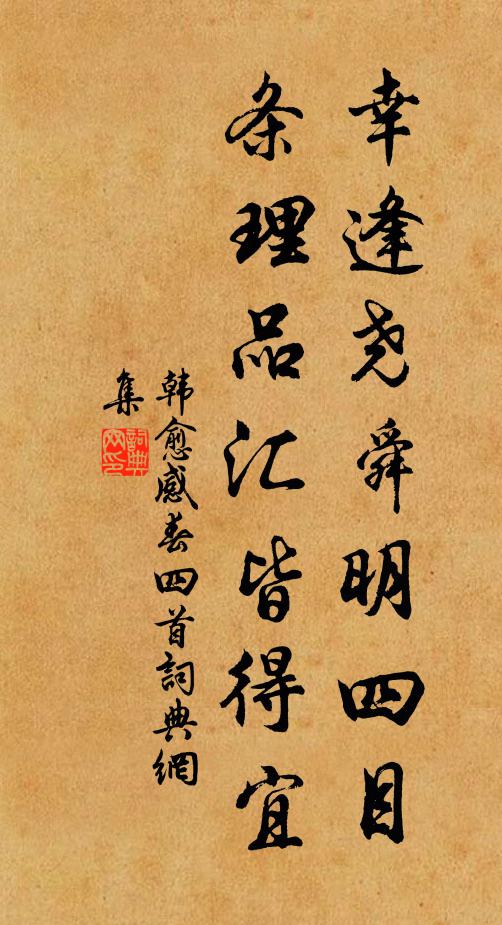 幸逢尧舜明四目
条理品汇皆得宜
韩愈感春四首詞典網
集
詞典网印